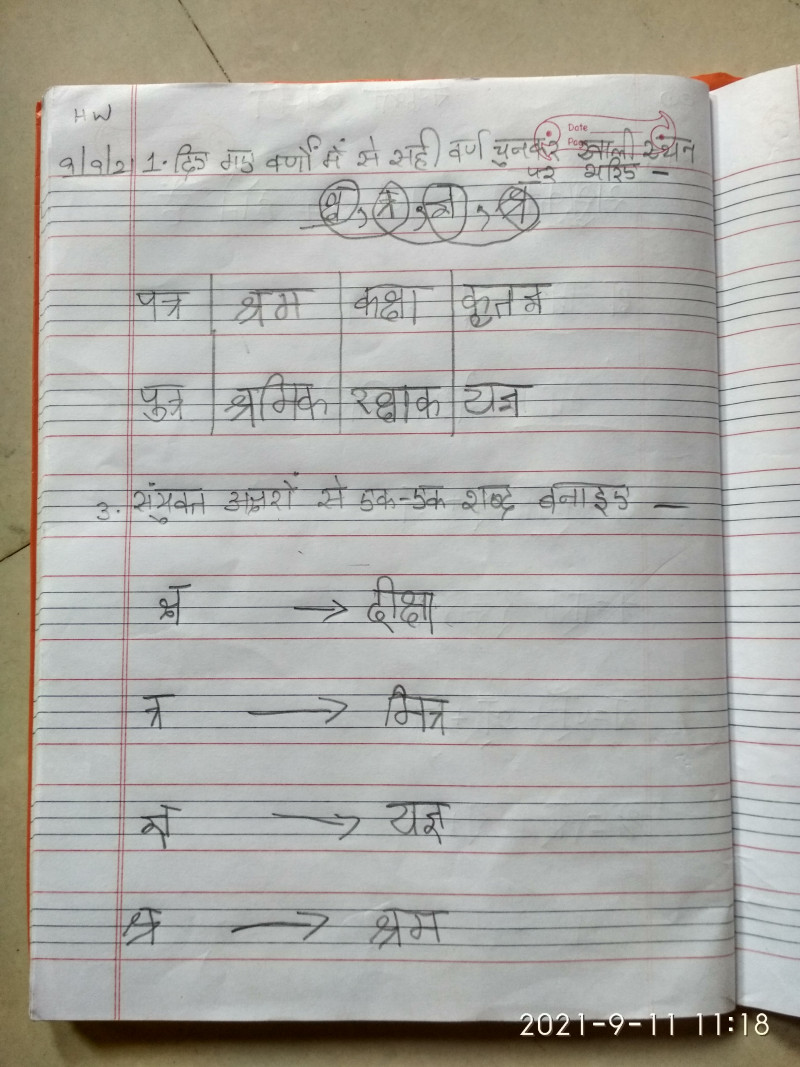 HW
Date
9/9/21 1. दिए गए वर्णों में से सही वर्ण चुनकर खाली स्थन
पर भरिए -
क्ष, त्र, ज्ञ, श्र
पत्र श्रम कक्षा कृतज्ञ
पुत्र श्रमिक रक्षाक यज्ञ
3. संयुक्त अक्षरों से एक-एक शब्द बनाइए —
क्ष → दीक्षा
त्र → मित्र
ज्ञ → यज्ञ
श्र → श्रम
2021-9-11 11:18